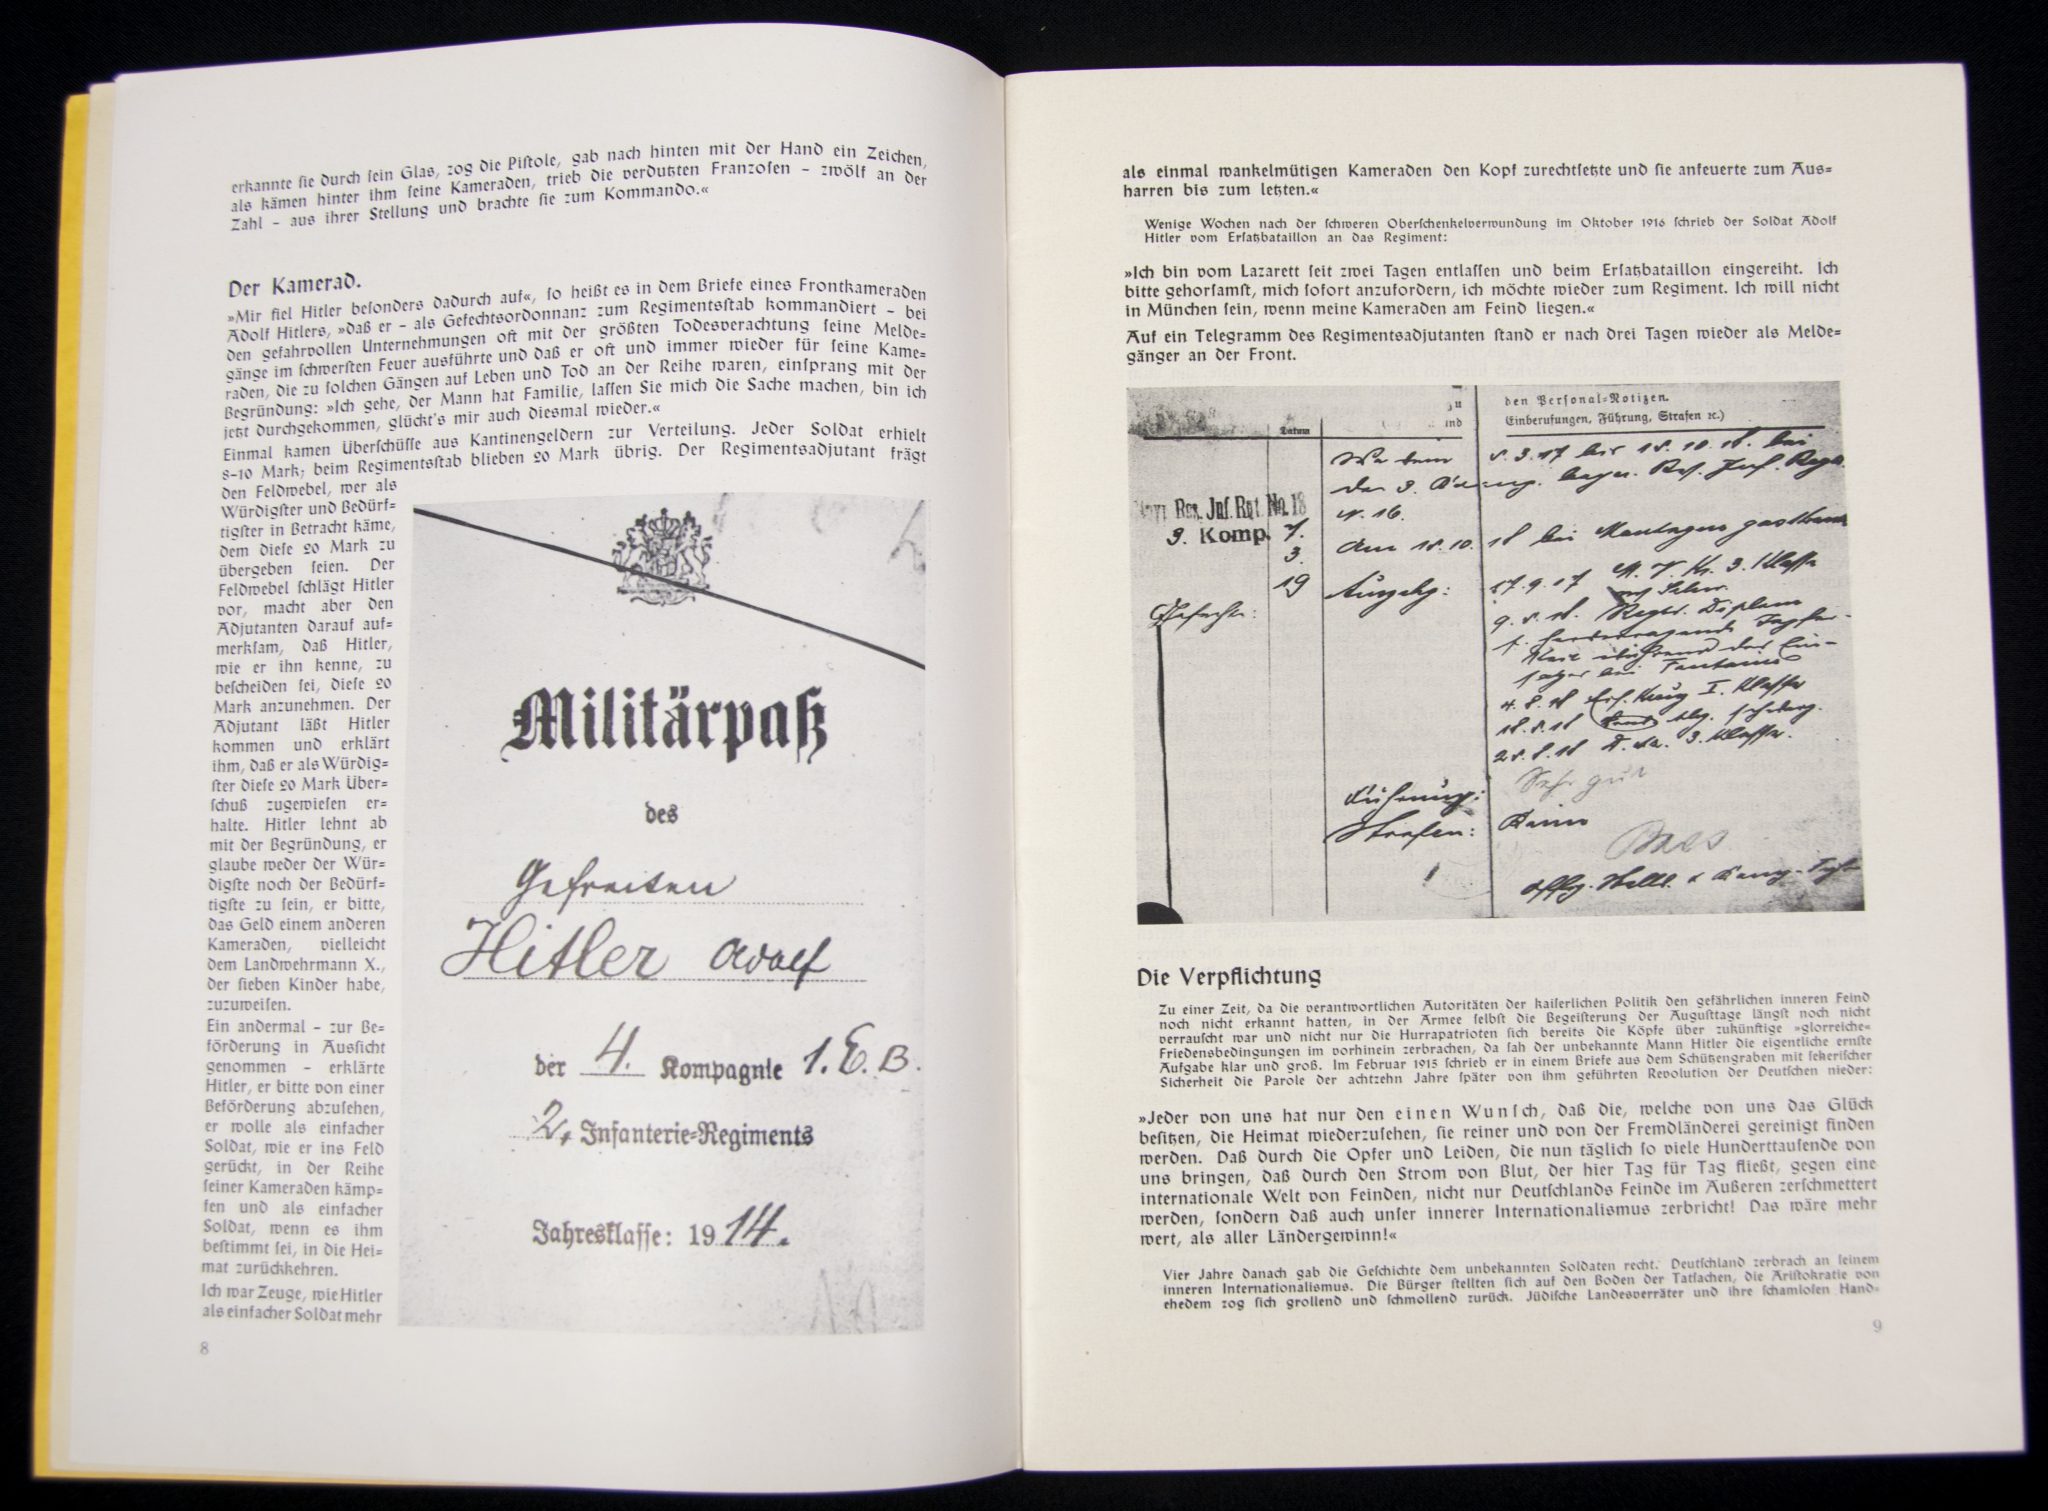 erkannte sie durch sein Glas, zog die Pistole, gab nach hinten mit der Hand ein Zeichen,
als kämen hinter ihm seine Kameraden, trieb die verdutzten Franzosen – zwölf an der
Zahl – aus ihrer Stellung und brachte sie zum Kommando.«
Der Kamerad.
»Mir fiel Hitler besonders dadurch auf«, so heißt es in dem Briefe eines Frontkameraden
Adolf Hitlers, »daß er – als Gefechtsordonnanz zum Regimentsstab kommandiert – bei
den gefahrvollen Unternehmungen oft mit der größten Todesverachtung seine Melde=
gänge im schwersten Feuer ausführte und daß er oft und immer wieder für seine Kame=
raden, die zu solchen Gängen auf Leben und Tod an der Reihe waren, einsprang mit der
Begründung: »Ich gehe, der Mann hat Familie, lassen Sie mich die Sache machen, bin ich
jetzt durchgekommen, glückt's mir auch diesmal wieder.«
Einmal kamen Überschüsse aus Kantinengeldern zur Verteilung. Jeder Soldat erhielt
8–10 Mark; beim Regimentsstab blieben 20 Mark übrig. Der Regimentsadjutant frägt
den Feldwebel, wer als
Würdigster und Bedürf=
tigster in Betracht käme,
dem diese 20 Mark zu
übergeben seien. Der
Feldwebel schlägt Hitler
vor, macht aber den
Adjutanten darauf auf=
merksam, daß Hitler,
wie er ihn kenne, zu
bescheiden sei, diese 20
Mark anzunehmen. Der
Adjutant läßt Hitler
kommen und erklärt
ihm, daß er als Würdig=
ster diese 20 Mark Über=
schuß zugewiesen er=
halte. Hitler lehnt ab
mit der Begründung, er
glaube weder der Wür=
digste noch der Bedürf=
tigste zu sein, er bitte,
das Geld einem anderen
Kameraden, vielleicht
dem Landwehrmann X.,
der sieben Kinder habe,
zuzuweisen.
Ein andermal – zur Be=
förderung in Aussicht
genommen – erklärte
Hitler, er bitte von einer
Beförderung abzusehen,
er wolle als einfacher
Soldat, wie er ins Feld
gerückt, in der Reihe
seiner Kameraden kämp=
fen und als einfacher
Soldat, wenn es ihm
bestimmt sei, in die Hei=
mat zurückkehren.
Ich war Zeuge, wie Hitler
als einfacher Soldat mehr
8
Militärpaß
des
Gefreiten
Hitler Adolf
der 4. Kompagnie 1. E. B.
2. Infanterie=Regiments
Jahresklasse: 1914.
als einmal wankelmütigen Kameraden den Kopf zurechtsetzte und sie anfeuerte zum Aus=
harren bis zum letzten.«
Wenige Wochen nach der schweren Oberschenkelverwundung im Oktober 1916 schrieb der Soldat Adolf
Hitler vom Ersatzbataillon an das Regiment:
»Ich bin vom Lazarett seit zwei Tagen entlassen und beim Ersatzbataillon eingereiht. Ich
bitte gehorsamst, mich sofort anzufordern, ich möchte wieder zum Regiment. Ich will nicht
in München sein, wenn meine Kameraden am Feind liegen.«
Auf ein Telegramm des Regimentsadjutanten stand er nach drei Tagen wieder als Melde=
gänger an der Front.
den Personal=Notizen.
Einberufungen, Führung, Strafen ꝛc.)
Datum
Res. Inf. Rgt. No. 16
3. Komp.
7.
3.
19
N. 16.
Am 15.10.18 bei
17.9.17 M. V. K. 3. Klasse
9.5.18 Regts. Diplom
4.8.18 I. Klasse
18.5.18
25.8.18 3. Klasse.
Führung: Sehr gut
Strafen: Keine
Die Verpflichtung
Zu einer Zeit, da die verantwortlichen Autoritäten der kaiserlichen Politik den gefährlichen inneren Feind
noch nicht erkannt hatten, in der Armee selbst die Begeisterung der Augusttage längst noch nicht
verrauscht war und nicht nur die Hurrapatrioten sich bereits die Köpfe über zukünftige »glorreiche«
Friedensbedingungen im vorhinein zerbrachen, da sah der unbekannte Mann Hitler die eigentliche ernste
Aufgabe klar und groß. Im Februar 1915 schrieb er in einem Briefe aus dem Schützengraben mit seherischer
Sicherheit die Parole der achtzehn Jahre später von ihm geführten Revolution der Deutschen nieder:
»Jeder von uns hat nur den einen Wunsch, daß die, welche von uns das Glück
besitzen, die Heimat wiederzusehen, sie reiner und von der Fremdländerei gereinigt finden
werden. Daß durch die Opfer und Leiden, die nun täglich so viele Hunderttausende von
uns bringen, daß durch den Strom von Blut, der hier Tag für Tag fließt, gegen eine
internationale Welt von Feinden, nicht nur Deutschlands Feinde im Äußeren zerschmettert
werden, sondern daß auch unser innerer Internationalismus zerbricht! Das wäre mehr
wert, als aller Ländergewinn!«
Vier Jahre danach gab die Geschichte dem unbekannten Soldaten recht. Deutschland zerbrach an seinem
inneren Internationalismus. Die Bürger stellten sich auf den Boden der Tatsachen, die Aristokratie von
ehedem zog sich grollend und schmollend zurück. Jüdische Landesverräter und ihre schamlosen Hand=
9